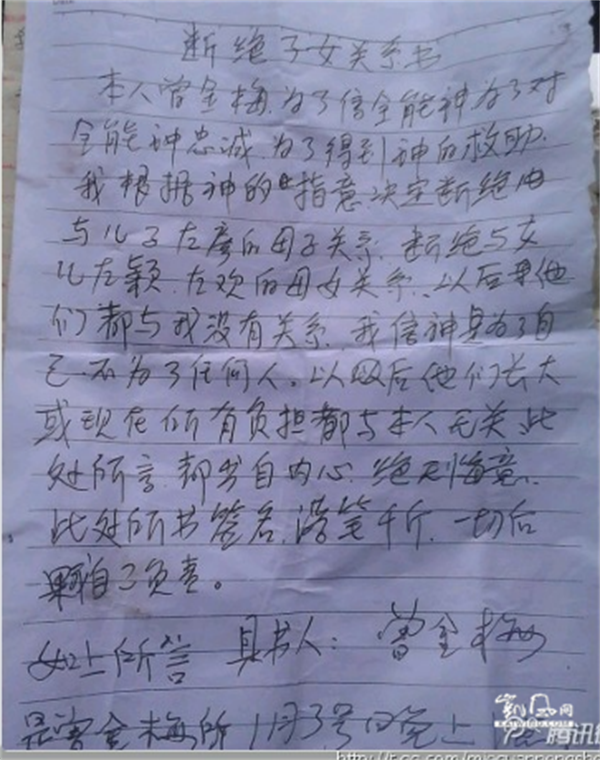 断绝子女关系书
本人曾金梅,为了信全能神为了对
全能神忠诚,为了得到神的救助.
我根据神的指意决定断绝
与儿子左彦的母子关系,断绝与女
儿左颖.左欢的母女关系、以后他
们都与我没有关系.我信神是为了自
己.不为了任何人。以后他们长大
或现在所有负担都与本人无关、此
处所言.都书自内心.绝无悔意、
此处所书签名,落笔千斤,一切后
果自己负责。
如上所答 具书人: 曾金梅
是曾金梅所1月3号日晚上
凯风网
KAIWIND.COM
腾讯微
http://t.qq.com/